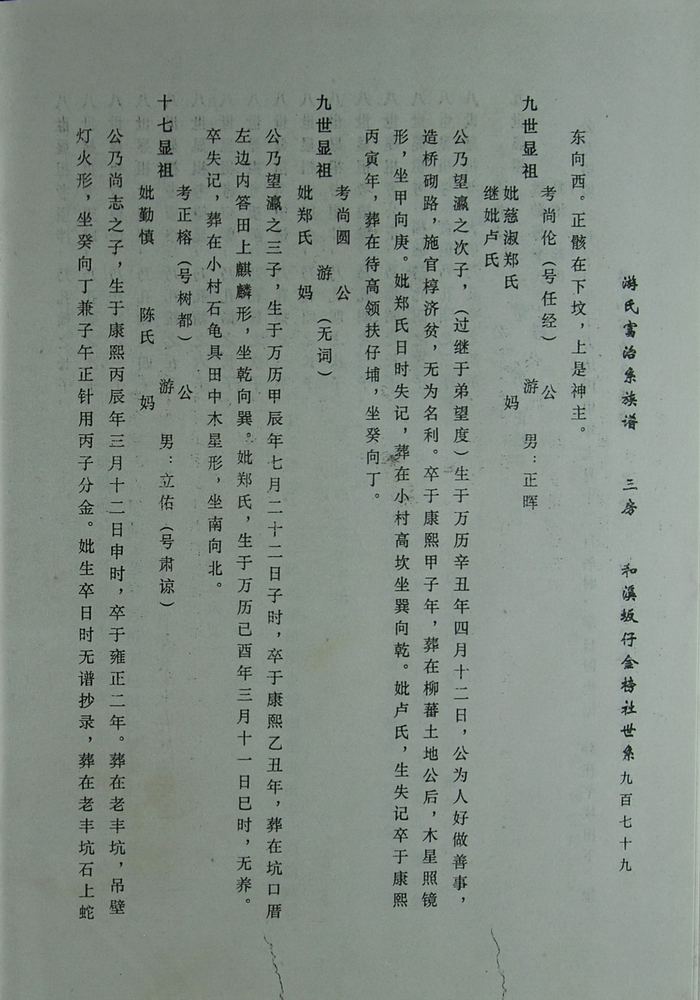 游氏富治系族谱 三房 和溪坂仔金榜社世系九百七十九
东向西。正骸在下坟，上是神主。
九世显祖
考尚伦（号任经） 公
游 男：正晖
妣慈淑郑氏 妈
继妣卢氏
公乃望瀛之次子，（过继于弟望度）生于万历辛丑年四月十二日，公为人好做善事，
造桥砌路，施官椁济贫，无为名利。卒于康熙甲子年，葬在柳蕃土地公后，木星照镜
形，坐甲向庚。妣郑氏日时失记，葬在小村高坎坐巽向乾。妣卢氏，生失记卒于康熙
丙寅年，葬在待高领扶仔埔，坐癸向丁。
九世显祖
考尚圆 公
游 （无词）
妣郑氏 妈
公乃望瀛之三子，生于万历甲辰年七月二十二日子时，卒于康熙乙丑年，葬在坑口厝
左边内答田上麒麟形，坐乾向巽。妣郑氏，生于万历己酉年三月十一日巳时，无养。
卒失记，葬在小村石龟具田中木星形，坐南向北。
十七显祖
考正榕（号树都） 公
游 男：立佑（号肃谅）
妣勤慎 陈氏 妈
公乃尚志之子，生于康熙丙辰年三月十二日申时，卒于雍正二年。葬在老丰坑，吊壁
灯火形，坐癸向丁兼子午正针用丙子分金。妣生卒日时无谱抄录，葬在老丰坑石上蛇